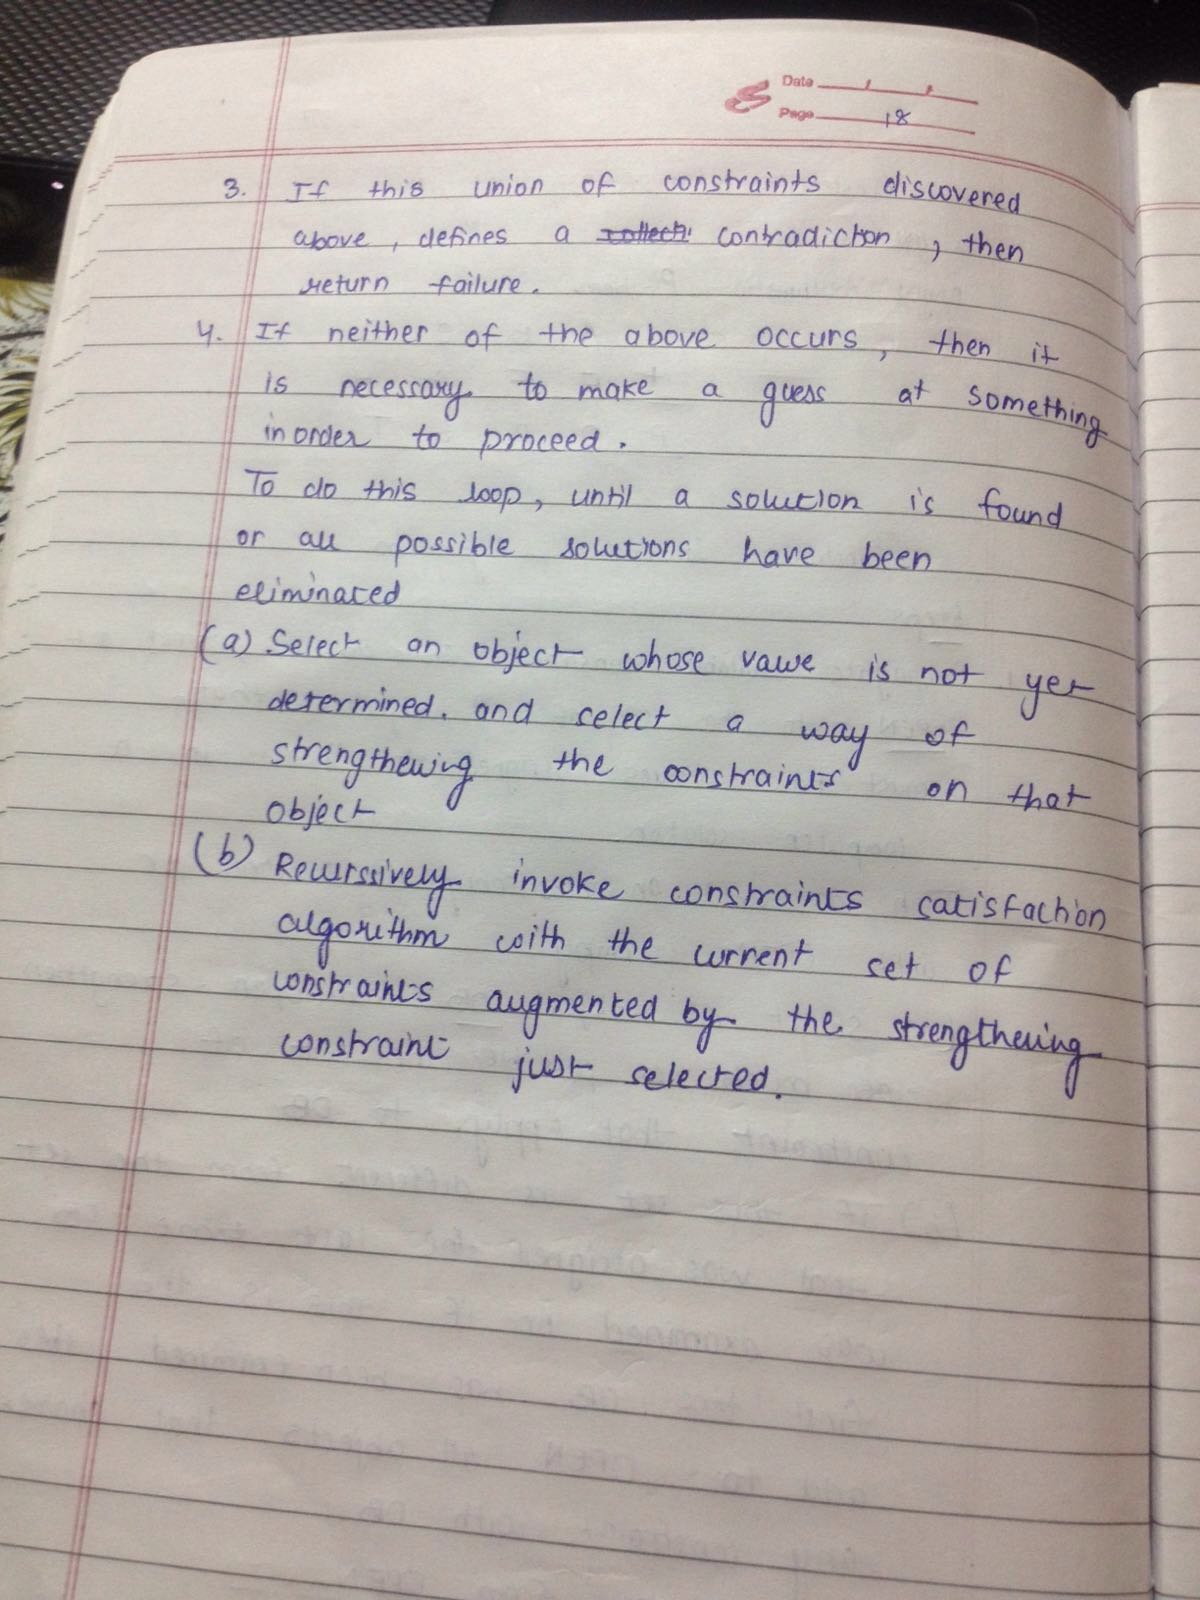 Date
Page 18
3. If this union of constraints discovered
above, defines a contradiction, then
return failure.
4. If neither of the above occurs, then it
is necessary to make a guess at something
inorder to proceed.
To do this loop, until a solution is found
or all possible solutions have been
eliminated
(a) Select an object whose value is not yet
determined. and select a way of
strengthewing the constraints on that
object
(b) Recurssively invoke constraints satisfaction
algorithm with the current set of
constraints augmented by the strengthening
constraint just selected.